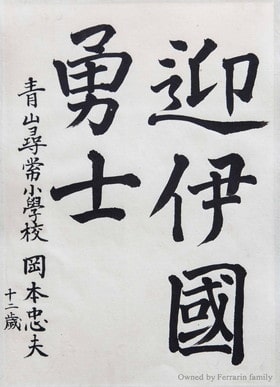 迎伊國
勇士
青山尋常小學校 岡本忠夫
十二歳
Owned by Ferrarin family